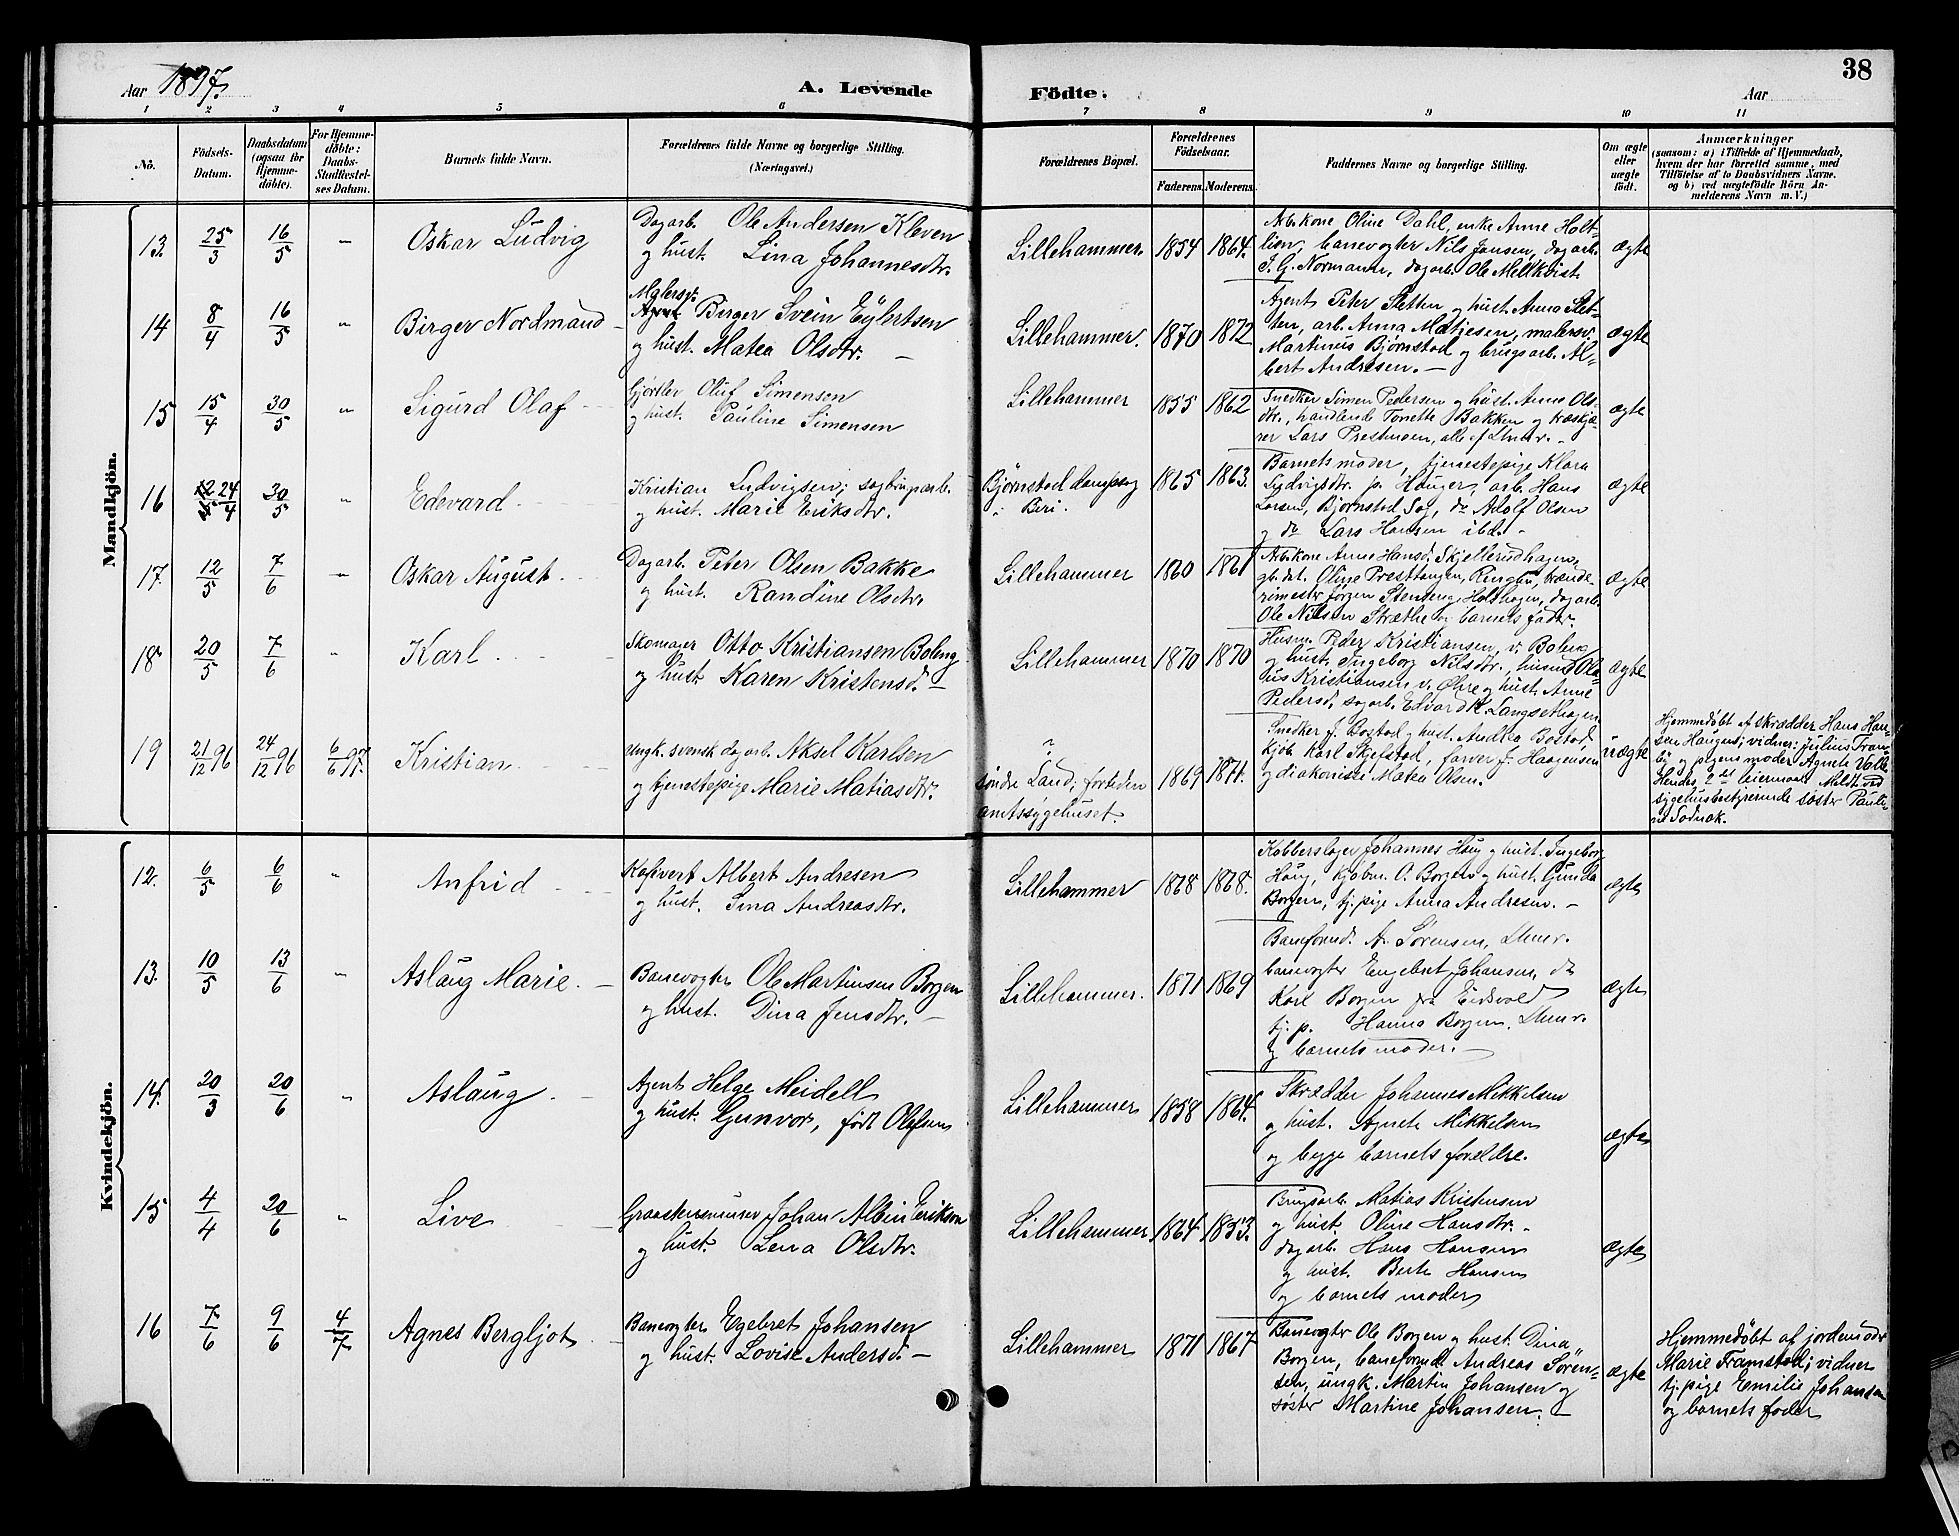 38
Aar 1897.
A. Levende Födte.
Aar
1 2 3 4 5 6 7 8 9 10 11
No.
Födsels-Datum.
Daabsdatum (ogsaa for Hjemme-döbte).
For Hjemme-döbte: Daabs-Stadfæstel-ses Datum.
Barnets fulde Navn.
Forældrenes fulde Navne og borgerlige Stilling.
(Næringsvei.)
Forældrenes Bopæl.
Forældrenes Födselsaar.
Faderens. Moderens.
Faddernes Navne og borgerlige Stilling.
Om ægte eller uægte født.
Anmærkninger
(saasom: a) i Tilfælde af Hjemmedaab,
hvem der har forrettet samme, med
Tilföielse af to Daabsvidners Navne.
og b) ved uægtefödte Börn An-
melderens Navn m. V.)
Mandkjön.
13. 25/3 16/5 " Oskar Ludvig
Dagarb. Ole Andersen Kleven
og hust. Lina Johannesdtr.
Lillehammer. 1854 1864.
Arb.kone Oline Dahl, enke Anne Holt-
lien, banevogter Nils Jansen, dagarb.
J. G. Normann, dagarb. Ole Mellkvist.
ægte
14 8/4 16/5 " Birger Nordmand
Malersv.
Agent Birger Svein Eylertsen
og hust. Matea Olsdtr.
Lillehammer. 1870 1872
Agent Peter Sletten og hust. Anna Slet-
ten, arb. Anna Matjesen, malersv.
Martinus Bjørnstad og brugsarb. Al-
bert Andresen. -
ægte
15 15/4 30/5 " Sigurd Olaf
Gjørtler Oluf Simensen
og hust. Pauline Simensen
Lillehammer 1855 1862
Snedker Simen Pedersen og hust. Anne Ols-
dtr., handlende Tonette Bakken og træskjæ-
rer Lars Prestmoen, alle af Lhmr. -
ægte
16 24/4 30/5 " Edevard
Kristian Ludvigsen, sagbrugsarb.
og hust. Marie Eriksdtr.
Bjørnstad dampsag
i Biri. 1865 1863.
Barnets moder, tjenestepige Klara
Ludvigsdtr. p. Hauger, arb. Hans
Larsen, Bjørnstad Sag, do Adolf Olsen
og do Lars Hansen ibd. -
ægte
17. 12/5 7/6 " Oskar August
Dagarb. Peter Olsen Bakke
og hust. Randine Olsdtr.
Lillehammer 1860 1861
Arb.kone Anne Hansd. Skjellerudhagen,
gb.dat. Oline Presttangen, Ringbu, brænde-
rimester Jørgen Stenseng, Holthagen, dagarb.
Ole Nilsen Stræthe og barnets fader.
ægte
18. 20/5 7/6 " Karl
Skomager Otto Kristiansen Boleng
og hust. Karen Kristensd. -
Lillehammer 1870 1870
Husm. Peder Kristiansen, v. Boleng
og hust. Ingeborg Nilsdtr., husmd. Ola-
us Kristiansen v. Øhre og hust. Anne
Pedersd. sagarb. Edvard K. Langsethagen.
ægte
19 21/12 96 24/12 96 6/6 97. Kristian
Ungk. svensk dagarb. Aksel Karlsen
og tjenestepige Marie Matiasdtr.
?
søndre Land, fortiden
amtssygehuset. 1869 1871.
Snedker J. Bostad og hust. Andrea Bostad
kjøb. Karl Skjefstad, farver J. Haagensen
og diakonisse Matea Olsen.
uægte
Hjemmedøbt af skrædder Hans Han-
sen Haugen; vidner: Julius Fram-
og plejens moder Agnete Valle
Hendes 2det leiermaal. Meldt ved
sygehusbestyrerinde søster Pauli-
ne
Kvindekjön.
12. 6/5 6/6 " Anfrid
Kafevert Albert Andresen
og hust. Sina Andreasdtr.
Lillehammer 1868 1868.
Kobberslager Johannes Haug og hust. Ingeborg
Haug, kjøbm. O. Borgen og hust. Gunda
Borgen, tj.pige Anna Andresen. -
ægte
13. 10/5 13/6 " Aslaug Marie.
Banevogter Ole Martinsen Borgen
og hust. Dina Jensdtr. -
Lillehammer. 1871 1869
Baneformd. A. Sørensen, Lhmr.
banevogter Engebret Johansen, do
Karl Borgen fra Eidsvold
tj. p. Hanna Borgen, Lhmr.
og barnets moder. -
ægte
14. 20/3 20/6 " Aslaug
Agent Helge Meidell
og hust. Gunvor, født Olafsen
Lillehammer 1858 1864.
Skrædder Johannes Mikkelsen
og hust. Agnete Mikkelsen
og begge barnets forældre.
ægte
15 4/4 20/6 " Live
Graastensmurer Johan Albin Erikson
og hust. Lena Olsdtr.
Lillehammer 1864 1853.
Brugsarb. Matias Kristensen
og hust. Oline Hansdtr. -
dagarb. Hans Hansen
og hust. Berte Hansen
og barnets moder
ægte
16 7/6 9/6 4/7 Agnes Bergljot
Banevogter Egebret Johansen
og hust. Lovise Andersd. -
Lillehammer 1871 1867
Banevogter Ole Borgen og hust. Dina
Borgen, baneformd. Andreas Søren-
sen, ungk. Martin Johansen og
søster Martine Johansen. -
ægte
Hjemmedøbt af jordemoder
Marie Framstad; vidner
tj.pige Emilie Johansen
og barnets fader